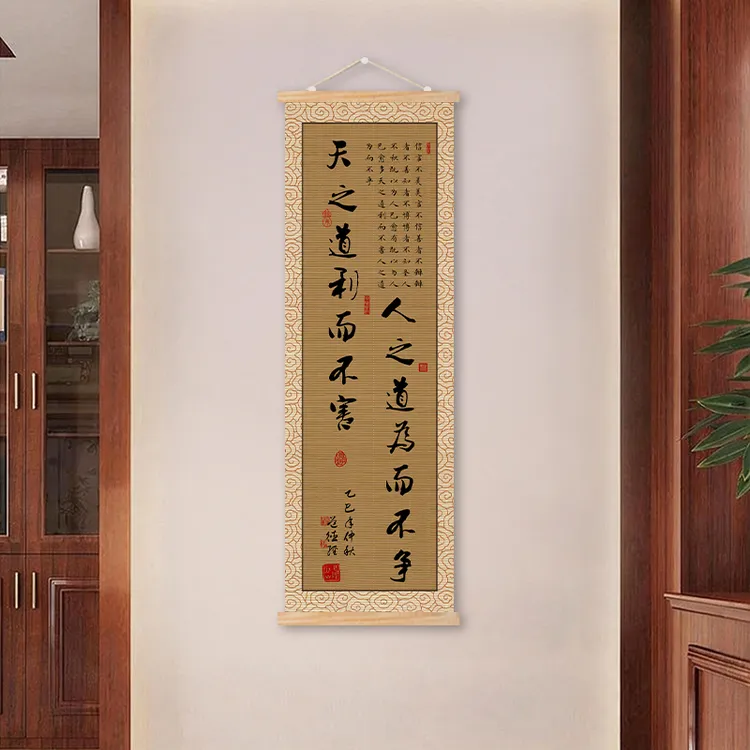 信言不美美言不信善者不辩辩
者不善知者不博博者不知圣人
不积既以为人己愈有既以为人
己愈多天之道利而不害人之道
为而不争
人之道為而不争
天之道利而不害
乙巳年仲秋
道德经